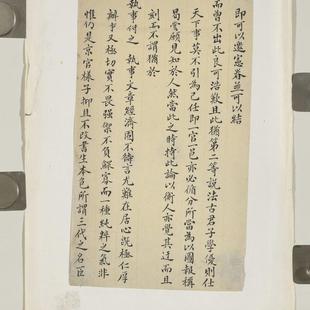 即可以邀憲眷並可以結
而曾不出此良可浩歎且此猶第二等說法古君子學優則仕
天下事莫不引為己任即一官一邑亦必備分所當為以圖報稱
曷嘗願見知於人然當此之時持此論以衡人亦覺其迂而且
刻不謂猶於
執事付之 執事文章經濟固不待言尤難在居心既極仁厚
辦事又極切實不畏強禦不負鰥寡而一種純粹之氣非
惟仍是京官樣子抑且不改書生本色所謂三代之名臣